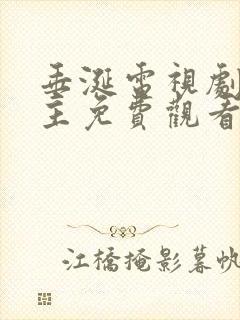 垂涎電視劇
主免費觀看
江橋掩影暮帆